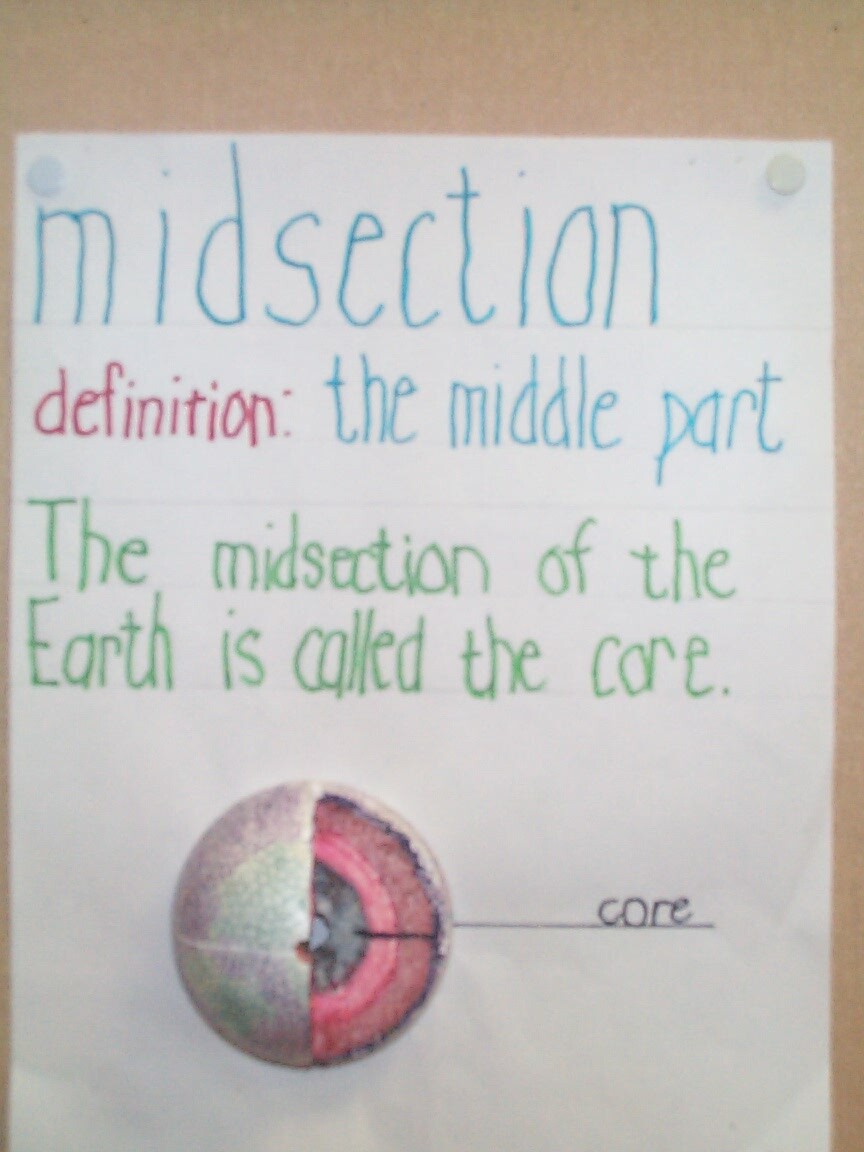 midsection
definition: the middle part
The midsection of the
Earth is called the core.
core